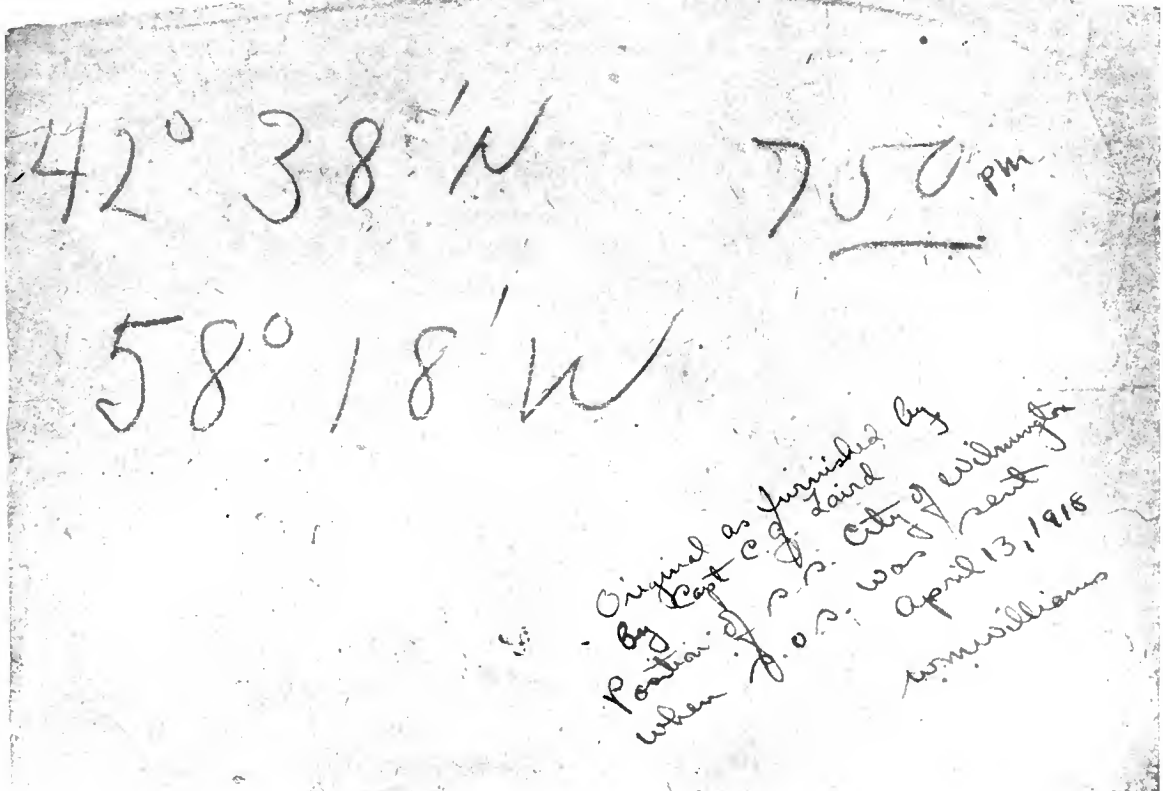 42° 38' N 7 50 PM
58° 18' W
Original as furnished by
By Capt C.J. Laird
Position of S.S. City of Wilmington
when S.O.S. was sent
April 13, 1918
Wm Williams